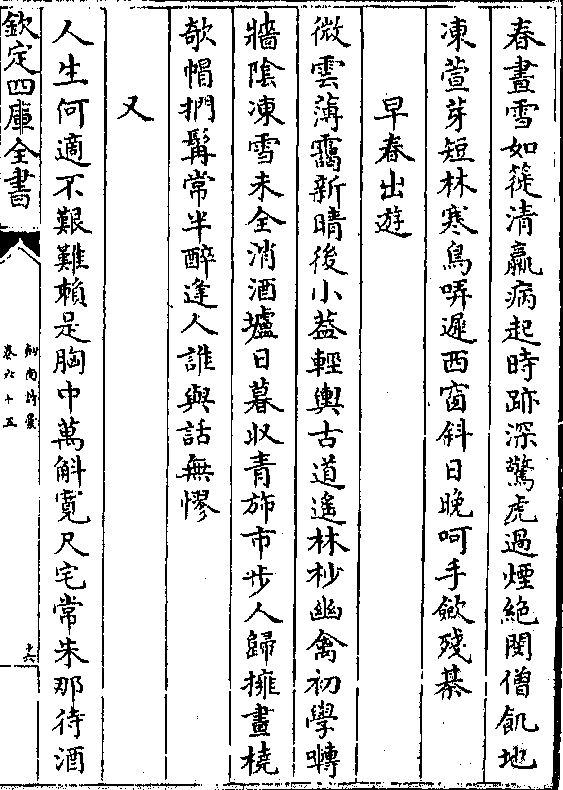 春晝雪如簁清羸病起時跡深驚虎過煙絶閔僧飢地
凍萱芽短林寒鳥哢遲西窗斜日晚呵手斂殘棊
早春出遊
微雲薄靄新晴後小葢輕輿古道遙林杪幽禽初學囀
牆隂凍雪未全消酒壚日暮收青斾市步人歸擁畫橈
欹帽捫髯常半醉逢人誰與話無憀
又
人生何適不艱難賴是胸中萬斛寛尺宅常朱那待酒
欽定四庫全書
劍南詩稾
卷六十五
十六